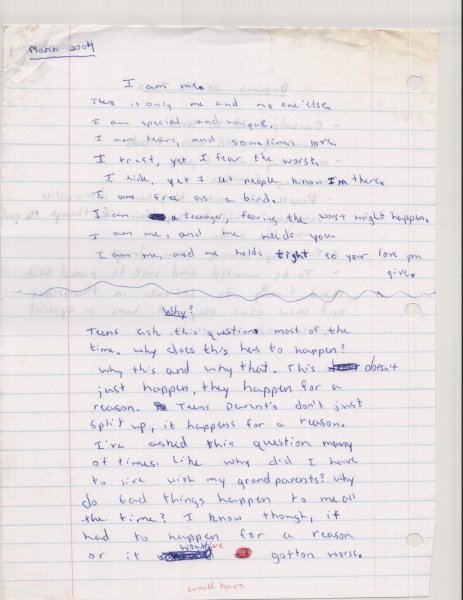 March 2004
I am me.
There is only me and no one else.
I am special and unique.
I am tears, and sometimes love.
I trust, yet I fear the worst.
I hide, yet I let people know I'm there.
I am free as a bird.
I am a teenager, fearing the worst might happen.
I am me, and me needs you.
I am me, and me holds tight to your love you
give.
Why?
Teens ask this question most of the
time. Why does this has to happen?
Why this and why that. This doesn't
just happen, they happen for a
reason. Teens parent's don't just
split up, it happens for a reason.
I've asked this question many
of times. Like why did I have
to live with my grandparents? Why
do bad things happen to me all
the time? I know though, it
had to happen for a reason
or it would've gotton worse.
would have